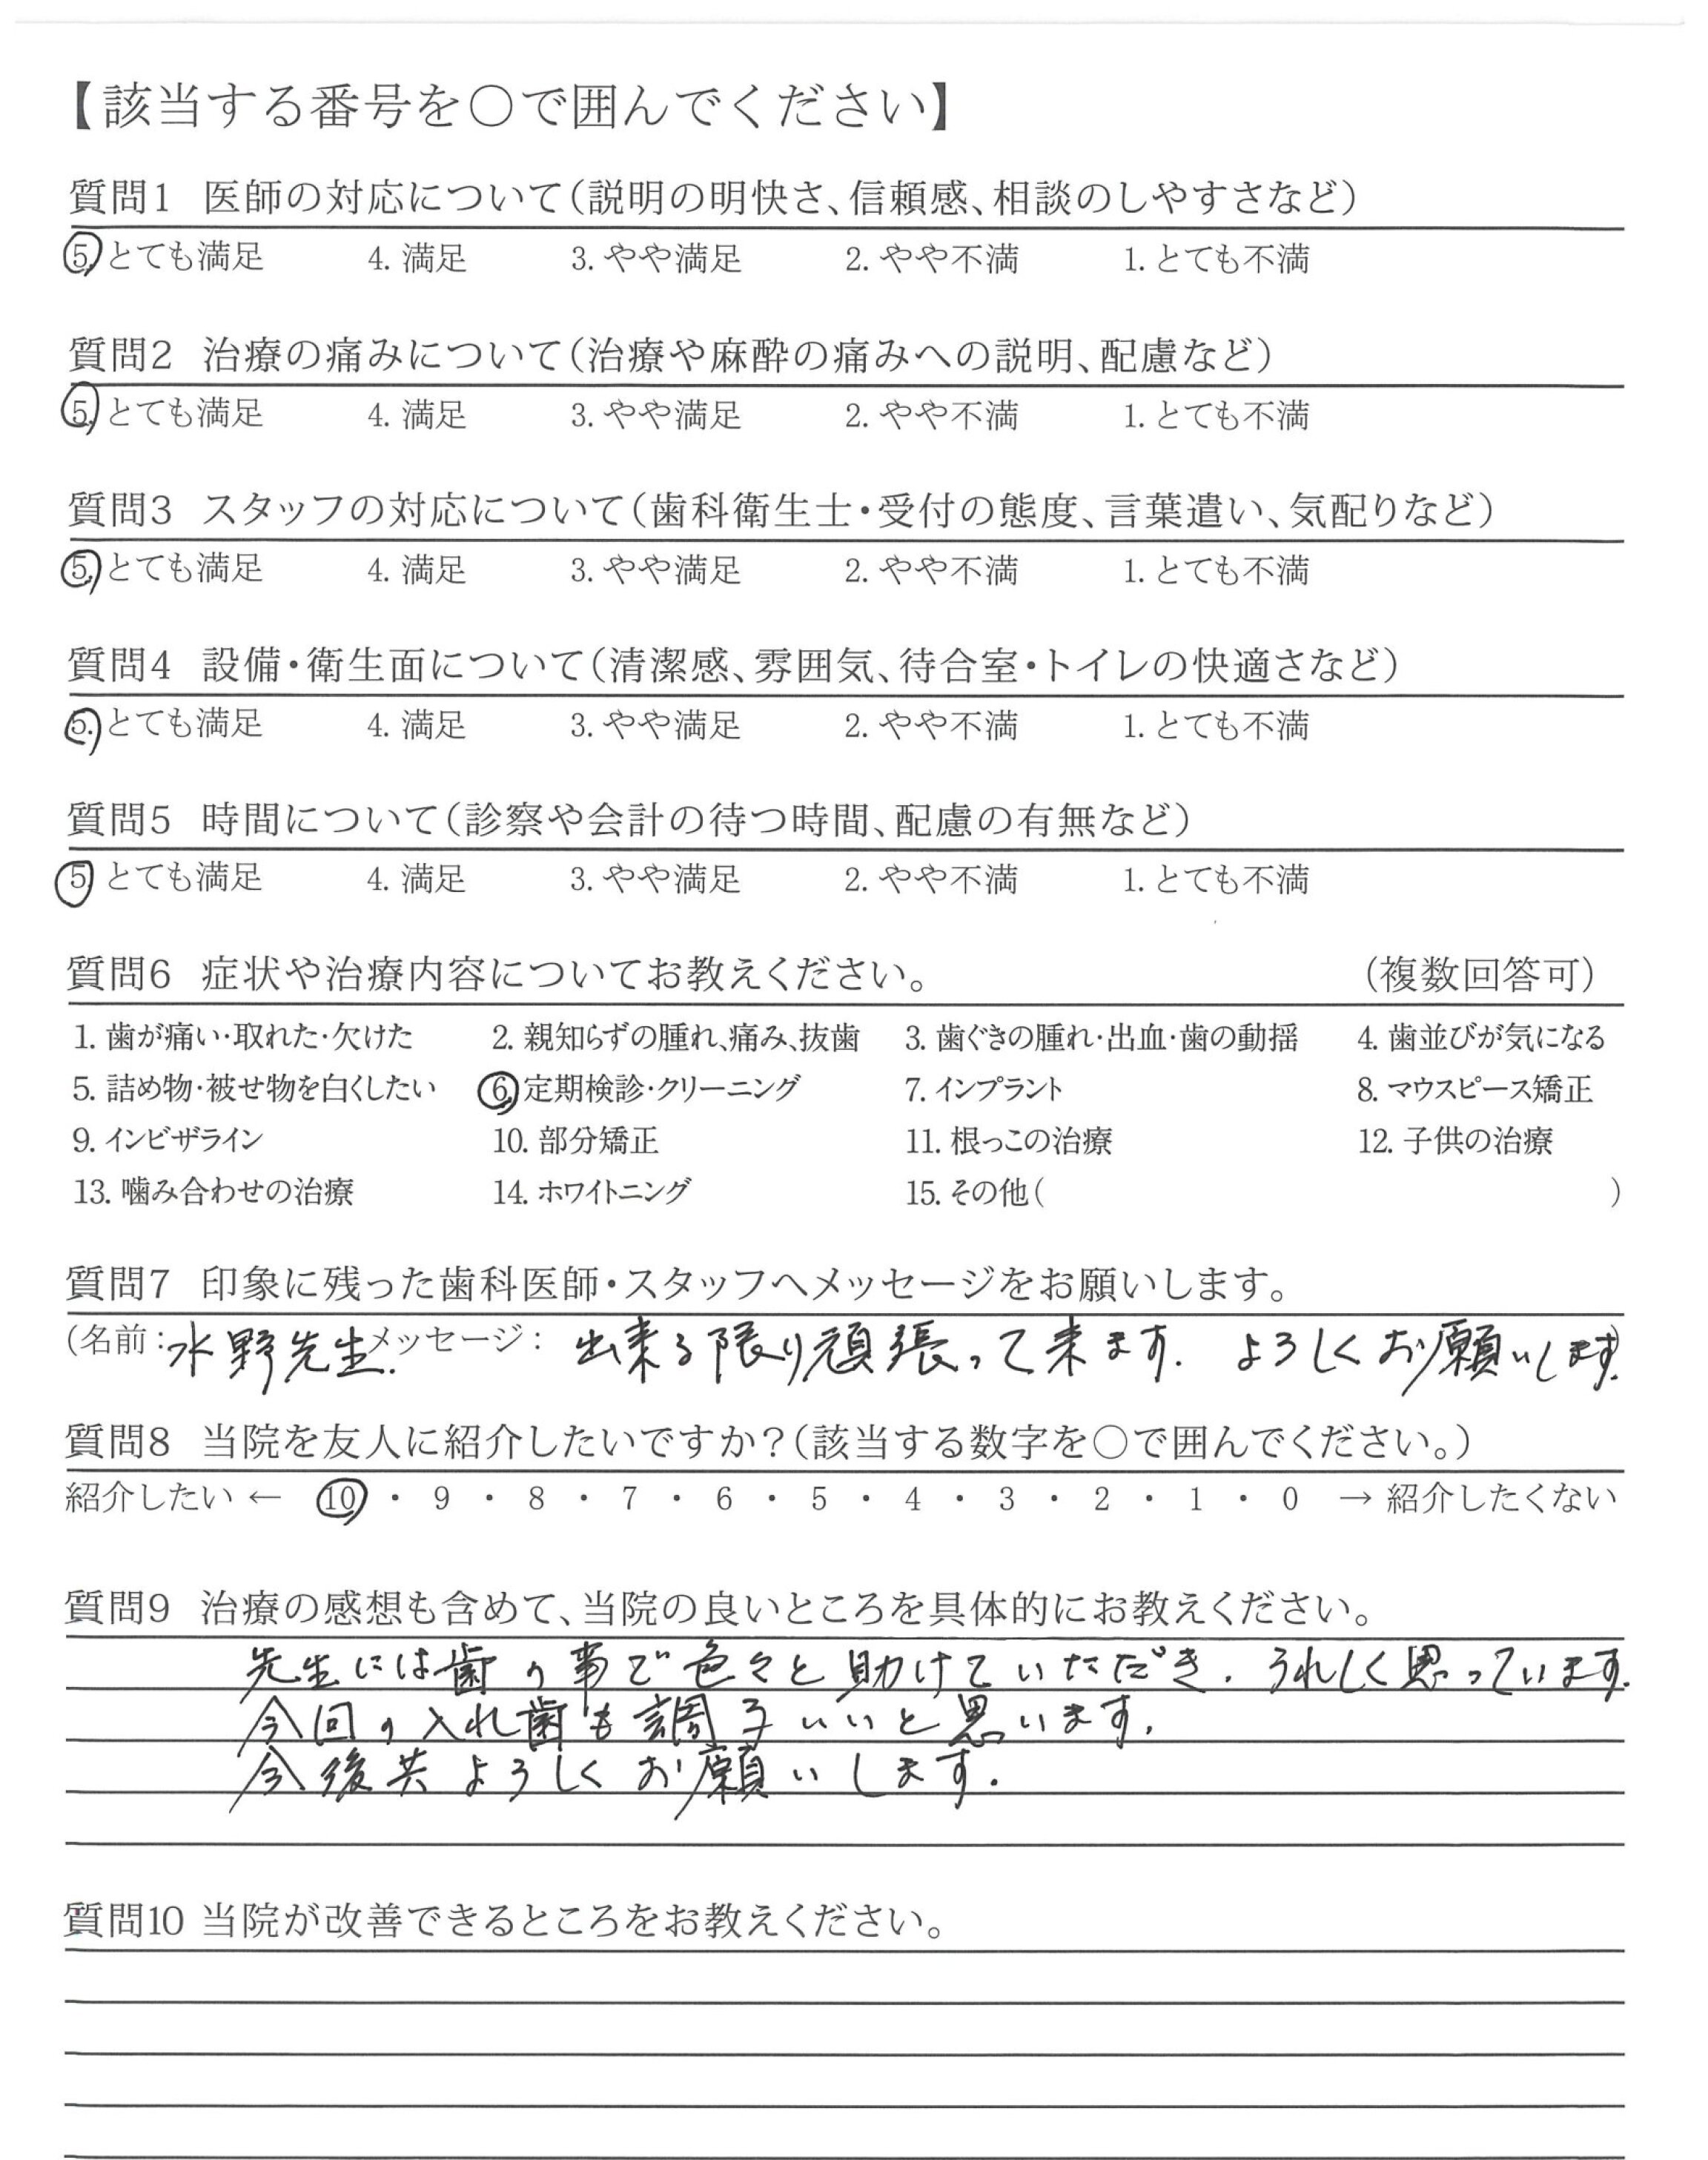 【該当する番号を〇で囲んでください】
質問1 医師の対応について(説明の明快さ、信頼感、相談のしやすさなど)
5. とても満足 4. 満足 3. やや満足 2. やや不満 1. とても不満
質問2 治療の痛みについて(治療や麻酔の痛みへの説明、配慮など)
5. とても満足 4. 満足 3. やや満足 2. やや不満 1. とても不満
質問3 スタッフの対応について(歯科衛生士・受付の態度、言葉遣い、気配りなど)
5. とても満足 4. 満足 3. やや満足 2. やや不満 1. とても不満
質問4 設備・衛生面について(清潔感、雰囲気、待合室・トイレの快適さなど)
5. とても満足 4. 満足 3. やや満足 2. やや不満 1. とても不満
質問5 時間について(診察や会計の待つ時間、配慮の有無など)
5. とても満足 4. 満足 3. やや満足 2. やや不満 1. とても不満
質問6 症状や治療内容についてお教えください。 (複数回答可)
1. 歯が痛い・取れた・欠けた 2. 親知らずの腫れ、痛み、抜歯 3. 歯ぐきの腫れ・出血・歯の動揺 4. 歯並びが気になる
5. 詰め物・被せ物を白くしたい 6. 定期検診・クリーニング 7. インプラント 8. マウスピース矯正
9. インビザライン 10. 部分矯正 11. 根っこの治療 12. 子供の治療
13. 噛み合わせの治療 14. ホワイトニング 15. その他( )
質問7 印象に残った歯科医師・スタッフへメッセージをお願いします。
(名前:水野先生.メッセージ: 出来る限り頑張って来ます. よろしくお願いします.)
質問8 当院を友人に紹介したいですか?(該当する数字を〇で囲んでください。)
紹介したい ← 10 ・ 9 ・ 8 ・ 7 ・ 6 ・ 5 ・ 4 ・ 3 ・ 2 ・ 1 ・ 0 → 紹介したくない
質問9 治療の感想も含めて、当院の良いところを具体的にお教えください。
先生には歯の事で色々と助けていただき.うれしく思っています.
今回の入れ歯も調子いいと思います.
今後共よろしくお願いします.
質問10 当院が改善できるところをお教えください。